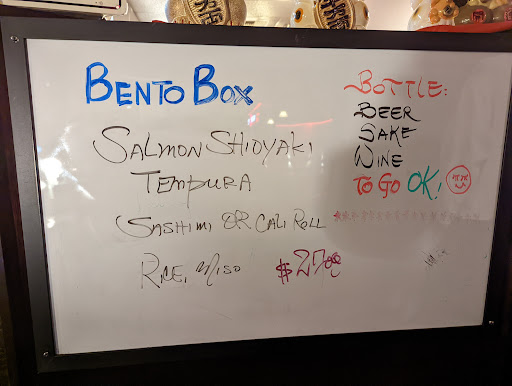 BENTO BOX
SALMON SHIOYAKI
TEMPURA
SASHIMI OR CALI ROLL
RICE, MISO $27.00
BOTTLE:
BEER
SAKE
WINE
TO GO OK!